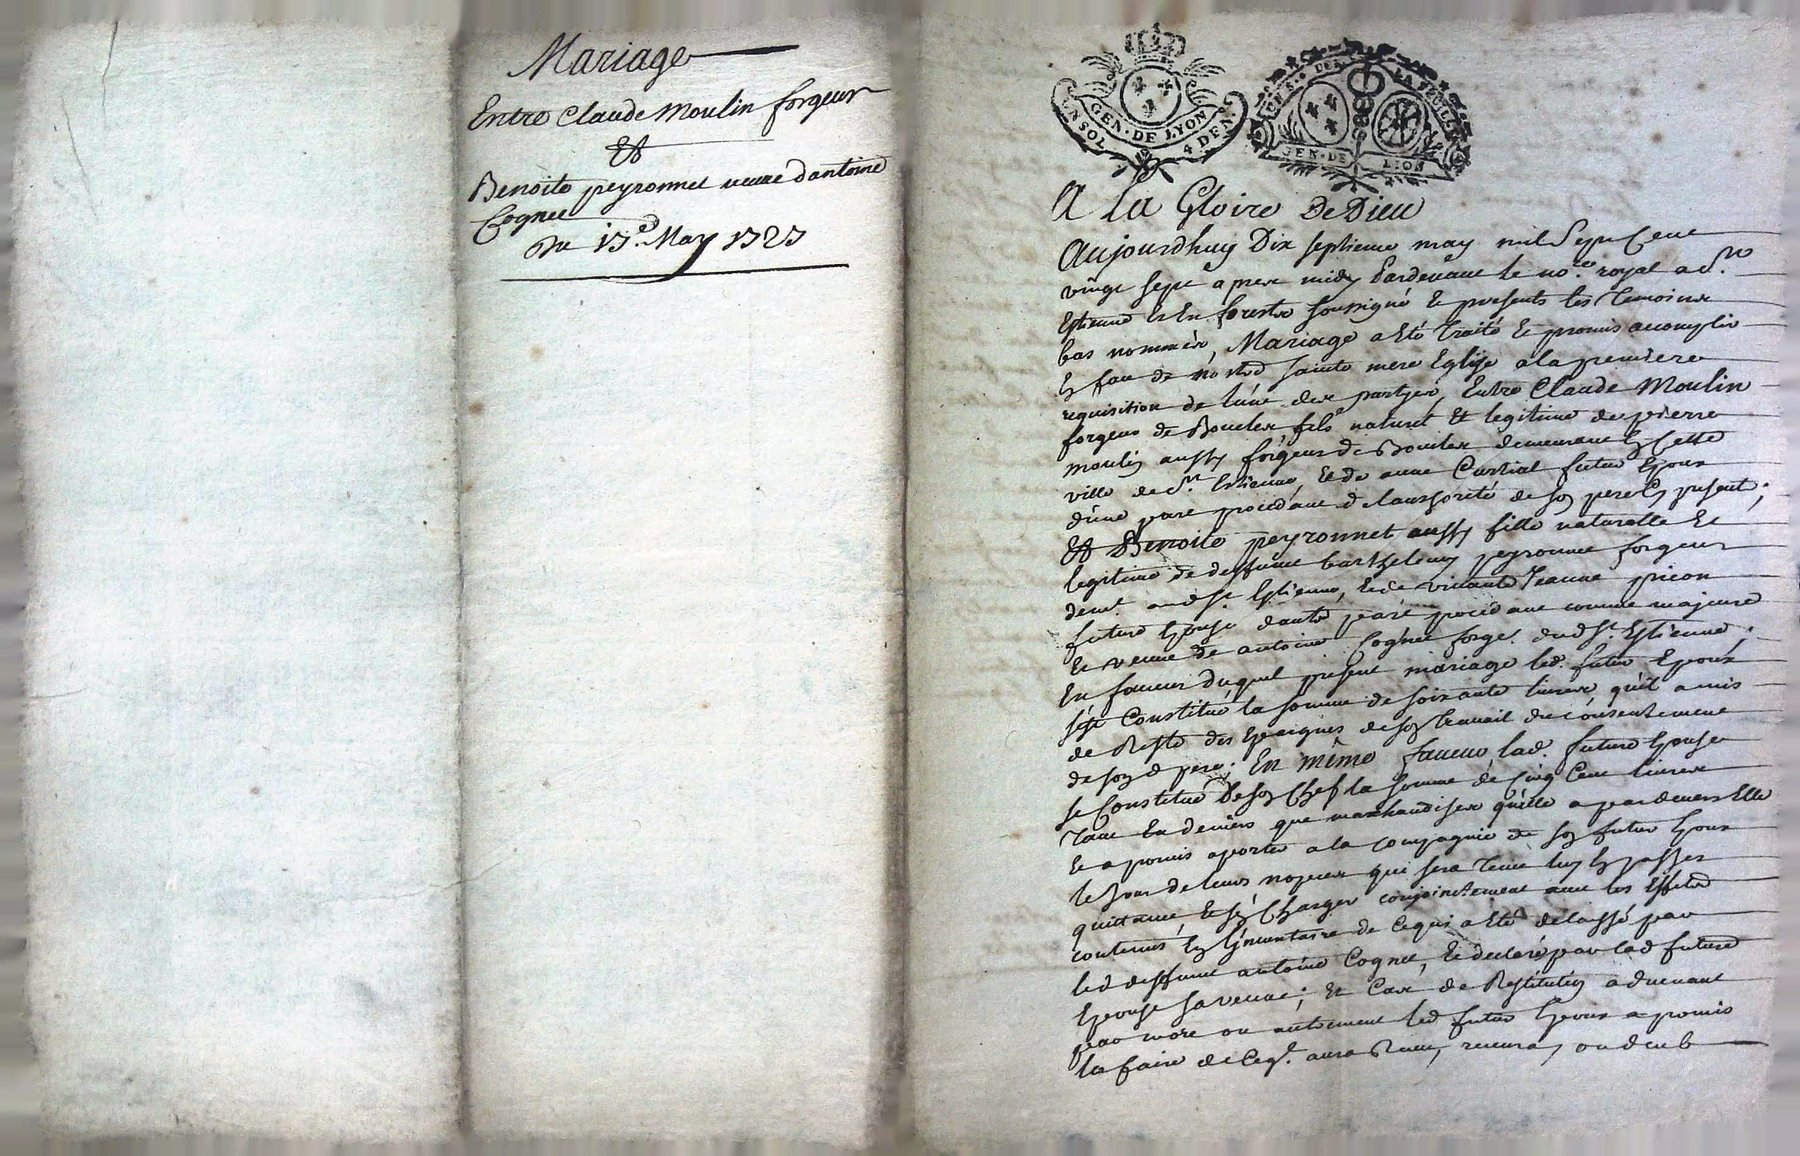 Mariage
Entre Claude Moulin forgeur
Et
Benoite peyronnet veuve dantoine
Cognet
Du 17e. May 1727
UN SOL
GEN. DE LYON
4 DEN.
GEN. DE LION
A La Gloire De Dieu
Aujourdhuy Dix septieme may mil Sept Cent
vingt sept apres midy Pardevant le nore. royal a St.
Estienne En forestz soussigné Et presents les temoins
bas nommés, Mariage a Eté traité Et promis accomplir
En face de nostre sainte mere Eglise a la premiere
requisition de lune des partyes, Entre Claude Moulin
forgeur de Boucles fils naturel Et legitime de pierre
moulin aussy forgeur de Boucles demeurant En cette
ville de St. Estienne, Et de anne futur Epoux
dune part procedant de lauthorité de son pere present;
Et Benoite peyronnet aussy fille naturelle Et
legitime de deffunt barthelemy peyronnet forgeur
demt. aud St. Estienne, Et de vivante Jeanne pricon
future Epouse dautre part procedant comme majeure
Et veuve de antoine Cognet forgr. dud St. Estienne;
En faveur duquel present mariage led. futur Epoux
sest Constitué la somme de soixante livres quil a mis
de Reste des Epargnes de son travail du consentement
de son d pere. En même faveur lad. future Epouse
se Constitue De son Chef la somme de Cinq Cent livres
tant En deniers que marchandises quelle a pardevers Elle
Et a promis aporter a la compagnie de son futur Epoux
le Jour de leurs nopces qui sera tenu luy En passer
quittance, Et sen Charger conjointement avec les Effets
contenus En Linventaire de Ce qui a Eté delaissé par
led deffunt antoine Cognet, Et declaré par lad future
Epouse sa veuve; Et Cas de Restitution advenant
par mort ou autrement led futur Epoux a promis
la faire de Ceql. aura Receu, recevra, ou deub